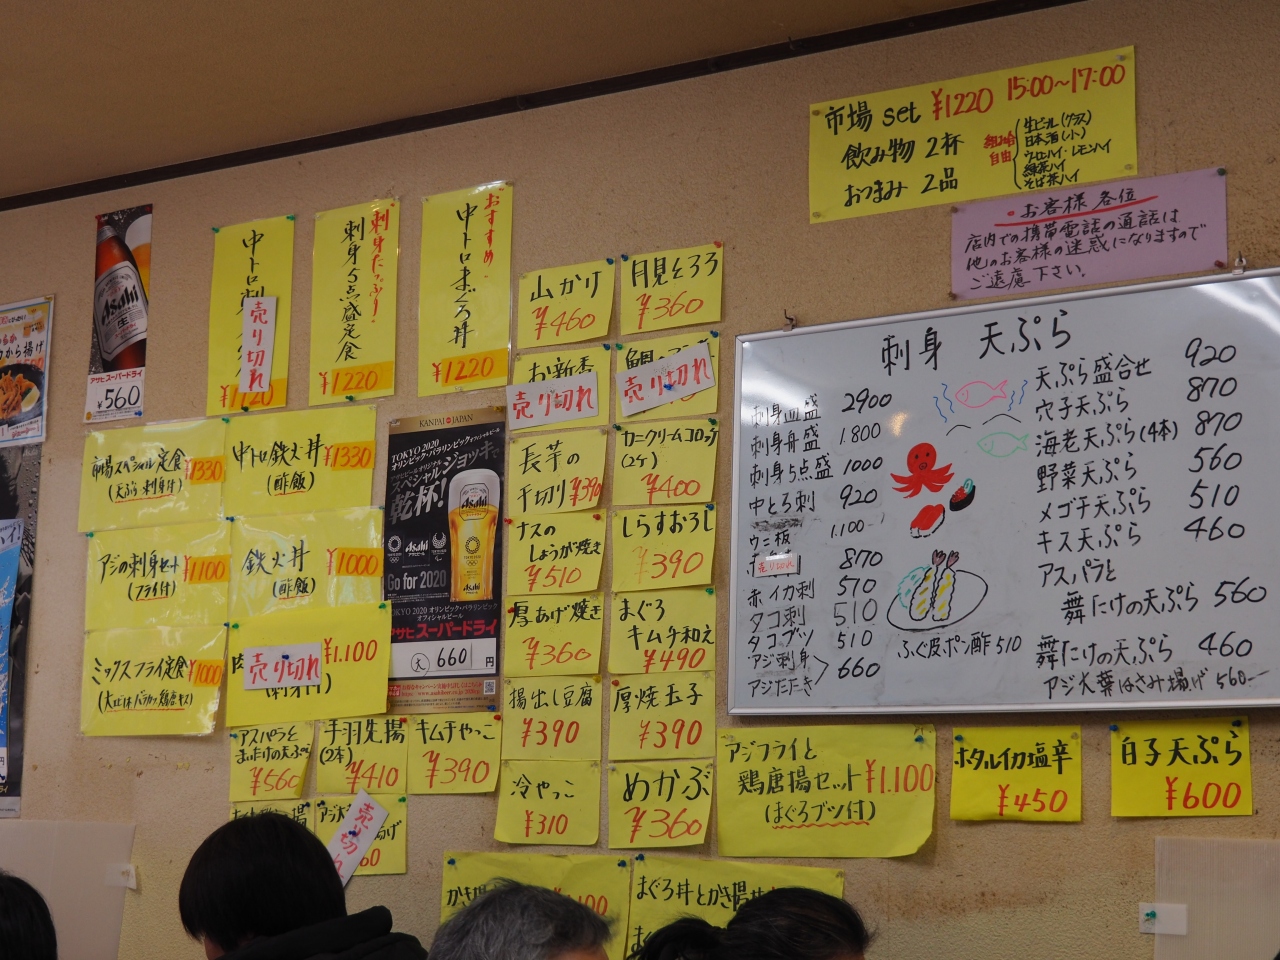 市場 set ¥1220 15:00～17:00
飲み物 2杯
おつまみ 2品
組み合せ自由
生ビール(グラス)
日本酒(小)
ウーロンハイ・レモンハイ
緑茶ハイ
そば茶ハイ
お客様 各位
店内での携帯電話の通話は
他のお客様の迷惑になりますので
ご遠慮下さい。
Asahi
生
アサヒスーパードライ
¥560
から揚げ
中トロ刺
売り切れ
¥1120
刺身たっぷり!
刺身5点盛定食
¥1220
おすすめ
中トロまぐろ丼
¥1220
山かけ
¥460
月見とろろ
¥360
お新香
売り切れ
売り切れ
長芋の
千切り ¥390
カニクリームコロッケ
(2ケ)
¥400
ナスの
しょうが焼き
¥510
しらすおろし
¥390
厚あげ焼き
¥360
まぐろ
キムチ和え
¥490
揚出し豆腐
¥390
厚焼玉子
¥390
冷やっこ
¥310
めかぶ
¥360
市場スペシャル定食 ¥1330
(天ぷら 刺身付)
中トロ鉄火丼 ¥1330
(酢飯)
アジの刺身セット ¥1100
(フライ付)
鉄火丼 ¥1000
(酢飯)
ミックスフライ定食 ¥1000
売り切れ
¥1.100
(刺身付)
KANPAI JAPAN
TOKYO 2020
オリンピック・パラリンピック
スペシャルジョッキで
乾杯!
Asahi
Go for 2020
TOKYO 2020 オリンピック・パラリンピック
オフィシャルビール
アサヒスーパードライ
大 660円
アスパラと
まいたけの天ぷら
¥560
手羽先揚
(2本)
¥410
キムチやっこ
¥390
売り切れ
アジフライと
鶏唐揚セット ¥1.100
(まぐろブツ付)
ホタルイカ塩辛
¥450
白子天ぷら
¥600
かき揚
まぐろ丼とかき揚
刺身 天ぷら
刺身皿盛 2900
刺身舟盛 1.800
刺身5点盛 1000
中とろ刺 920
ウニ板 1.100
売り切れ 870
赤イカ刺 570
タコ刺 510
タコブツ 510
アジ刺身
アジたたき 660
ふぐ皮ポン酢 510
天ぷら盛合せ 920
穴子天ぷら 870
海老天ぷら(4本) 870
野菜天ぷら 560
メゴチ天ぷら 510
キス天ぷら 460
アスパラと
舞たけの天ぷら 560
舞たけの天ぷら 460
アジ大葉はさみ揚げ 560